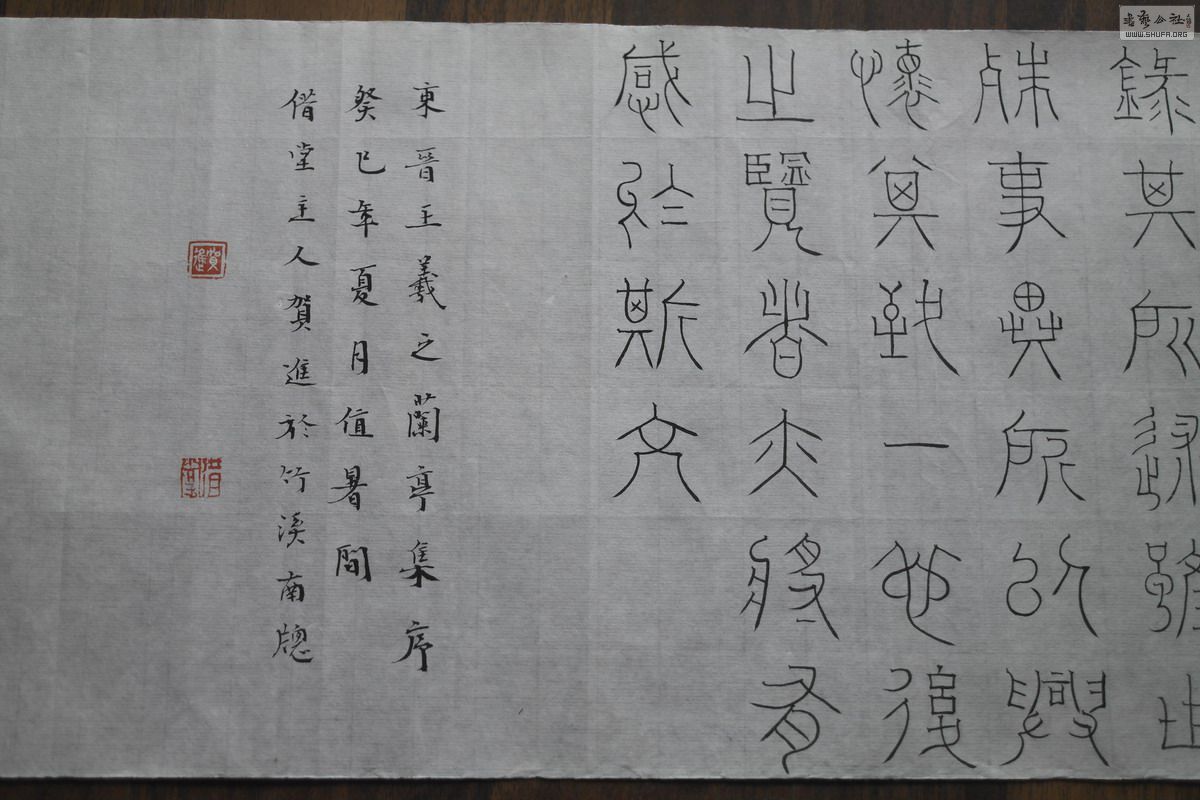 錄其所述雖世
殊事異所以興
懷其致一也後
之覽者亦將有
感於斯文
東晉王羲之蘭亭集序
癸巳年夏月值暑間
借堂主人賀進於竹溪南牕
賀進
借堂
書藝公社
WWW.SHUFA.ORG